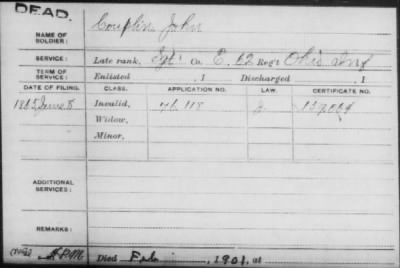 DEAD.
NAME OF SOLDIER: Couplin John
SERVICE: Late rank, Sgt. Co. E, 62 Reg't Ohio Inf
TERM OF SERVICE: Enlisted , 1 Discharged , 1
DATE OF FILING. CLASS. APPLICATION NO. LAW. CERTIFICATE NO.
1865 June 8 Invalid,
Widow,
Minor,
ADDITIONAL SERVICES:
REMARKS:
Died Feb , 1901, at